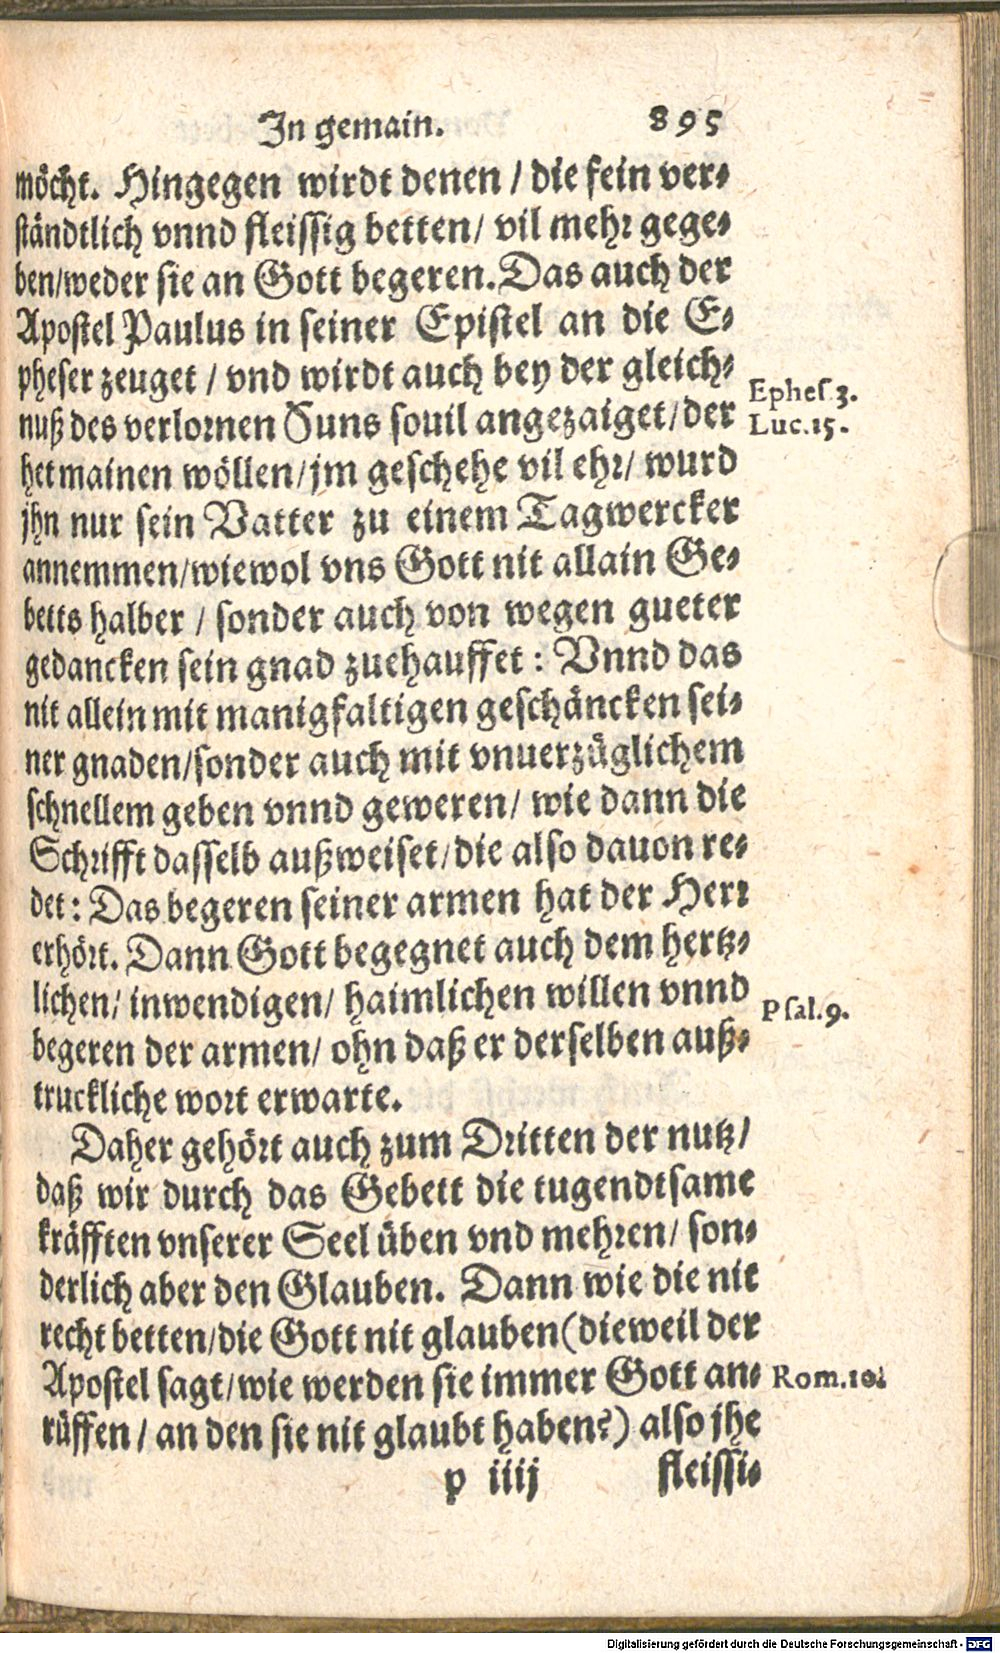 In gemain. 895
möcht. Hingegen wirdt denen / die fein ver-
ständtlich vnnd fleissig betten / vil mehr gege-
ben/weder sie an Gott begeren. Das auch der
Apostel Paulus in seiner Epistel an die E-
pheser zeuget / vnd wirdt auch bey der gleich-
Ephes 3.
nuß des verlornen Suns souil angezaiget/der
Luc.15.
het mainen wöllen/jm geschehe vil ehr/ wurd
jhn nur sein Vatter zu einem Tagwercker
annemmen/wiewol vns Gott nit allain Ge-
betts halber / sonder auch von wegen gueter
gedancken sein gnad zuehauffet : Vnnd das
nit allein mit manigfaltigen geschäncken sei-
ner gnaden/sonder auch mit vnuerzüglichem
schnellem geben vnnd geweren/ wie dann die
Schrifft dasselb außweiset/die also dauon re-
det : Das begeren seiner armen hat der Herr
erhört. Dann Gott begegnet auch dem hertz-
lichen/ inwendigen/ haimlichen willen vnnd
Psal.9.
begeren der armen/ ohn daß er derselben auß-
truckliche wort erwarte.
Daher gehört auch zum Dritten der nutz/
daß wir durch das Gebett die tugendtsame
kräfften vnserer Seel üben vnd mehren/ son-
derlich aber den Glauben. Dann wie die nit
recht betten/die Gott nit glauben(dieweil der
Apostel sagt/wie werden sie immer Gott an-
Rom.10.
rüffen / an den sie nit glaubt haben?) also jhe
p iiij fleissi-
Digitalisierung gefördert durch die Deutsche Forschungsgemeinschaft - DFG